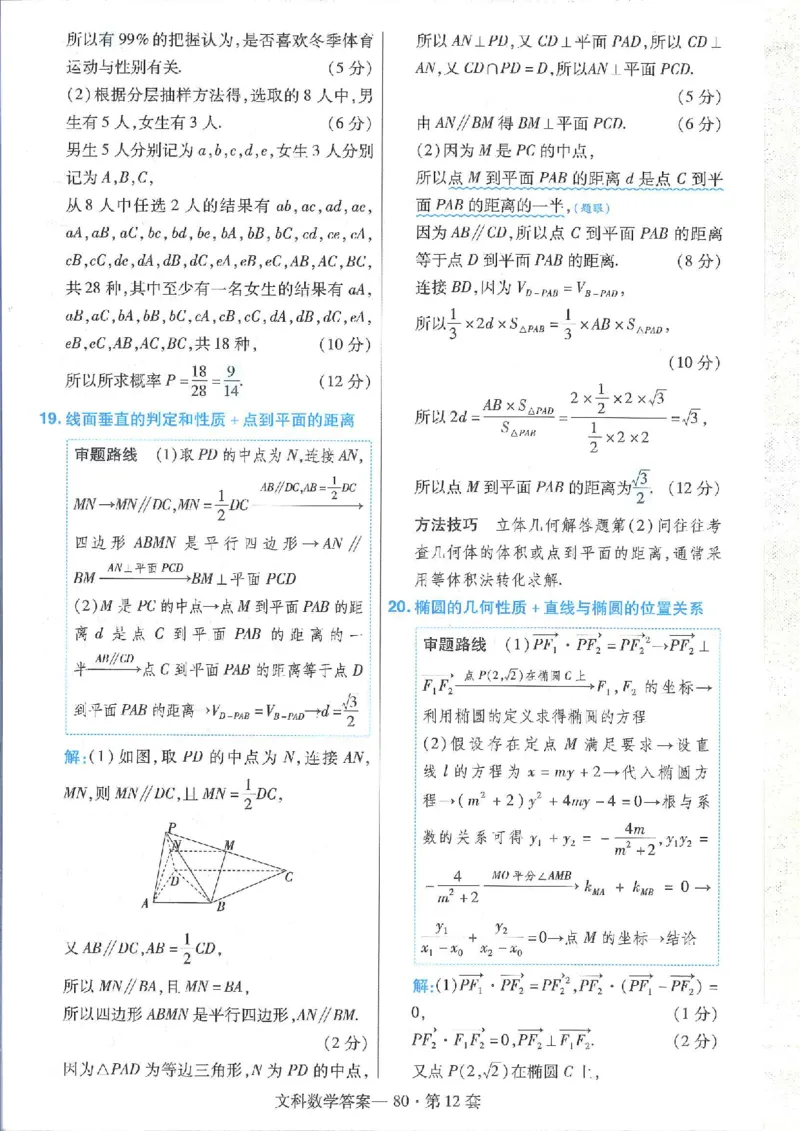 所以有 99% 的把握认为,是否喜欢冬季体育
运动与性别有关. (5 分)
(2)根据分层抽样方法得,选取的 8 人中,男
生有 5 人,女生有 3 人. (6 分)
男生 5 人分别记为 a,b,c,d,e,女生 3 人分别
记为 A,B,C,
从 8 人中任选 2 人的结果有 ab,ac,ad,ae,
aA,aB,aC,bc,bd,be,bA,bB,bC,cd,ce,cA,
cB,cC,de,dA,dB,dC,eA,eB,eC,AB,AC,BC,
共 28 种,其中至少有一名女生的结果有 aA,
aB,aC,bA,bB,bC,cA,cB,cC,dA,dB,dC,eA,
eB,eC,AB,AC,BC,共 18 种, (10 分)
所以所求概率 P = 18/28 = 9/14. (12 分)
19. 线面垂直的判定和性质 + 点到平面的距离
审题路线 (1)取 PD 的中点为 N,连接 AN,
MN→MN∥DC,MN = 1/2 DC AB∥DC,AB=1/2 DC→
四边形 ABMN 是平行四边形→AN∥
BM AN⊥平面 PCD→BM⊥平面 PCD
(2)M 是 PC 的中点→点 M 到平面 PAB 的距
离 d 是点 C 到平面 PAB 的距离的一
半 AB∥CD→点 C 到平面 PAB 的距离等于点 D
到平面 PAB 的距离→V_{D-PAB} = V_{B-PAD}→d = √3/2
解:(1)如图,取 PD 的中点为 N,连接 AN,
MN,则 MN∥DC,且 MN = 1/2 DC,
P
N
M
D
C
A
B
又 AB∥DC,AB = 1/2 CD,
所以 MN∥BA,且 MN = BA,
所以四边形 ABMN 是平行四边形,AN∥BM.
(2 分)
因为△PAD 为等边三角形,N 为 PD 的中点,
所以 AN⊥PD,又 CD⊥平面 PAD,所以 CD⊥
AN,又 CD∩PD = D,所以AN⊥平面 PCD.
(5 分)
由 AN∥BM 得 BM⊥平面 PCD. (6 分)
(2)因为 M 是 PC 的中点,
所以点 M 到平面 PAB 的距离 d 是点 C 到平
面 PAB 的距离的一半,(题眼)
因为 AB∥CD,所以点 C 到平面 PAB 的距离
等于点 D 到平面 PAB 的距离. (8 分)
连接 BD,因为 V_{D-PAB} = V_{B-PAD},
所以 1/3 ×2d×S_{△PAB} = 1/3 ×AB×S_{△PAD},
(10 分)
所以 2d = (AB×S_{△PAD})/S_{△PAB} = (2×1/2×2×√3)/(1/2×2×2) = √3,
所以点 M 到平面 PAB 的距离为 √3/2. (12 分)
方法技巧 立体几何解答题第(2)问往往考
查几何体的体积或点到平面的距离,通常采
用等体积法转化求解.
20. 椭圆的几何性质 + 直线与椭圆的位置关系
审题路线 (1)PF₁→ · PF₂→ = PF₂→²→PF₂→⊥
F₁F₂→ 点 P(2,√2)在椭圆 C 上→F₁,F₂ 的坐标→
利用椭圆的定义求得椭圆的方程
(2)假设存在定点 M 满足要求→设直
线 l 的方程为 x = my + 2→代入椭圆方
程→(m² + 2)y² + 4my - 4 = 0→根与系
数的关系可得 y₁ + y₂ = - 4m/(m² + 2),y₁y₂ =
- 4/(m² + 2) MO 平分∠AMB→k_{MA} + k_{MB} = 0→
y₁/(x₁ - x₀) + y₂/(x₂ - x₀) = 0→点 M 的坐标→结论
解:(1)PF₁→ · PF₂→ = PF₂→²,PF₂→ · (PF₁→ - PF₂→) =
0, (1 分)
PF₂→ · F₁F₂→ = 0,PF₂→⊥F₁F₂→. (2 分)
又点 P(2,√2)在椭圆 C 上,
文科数学答案— 80 · 第 12 套